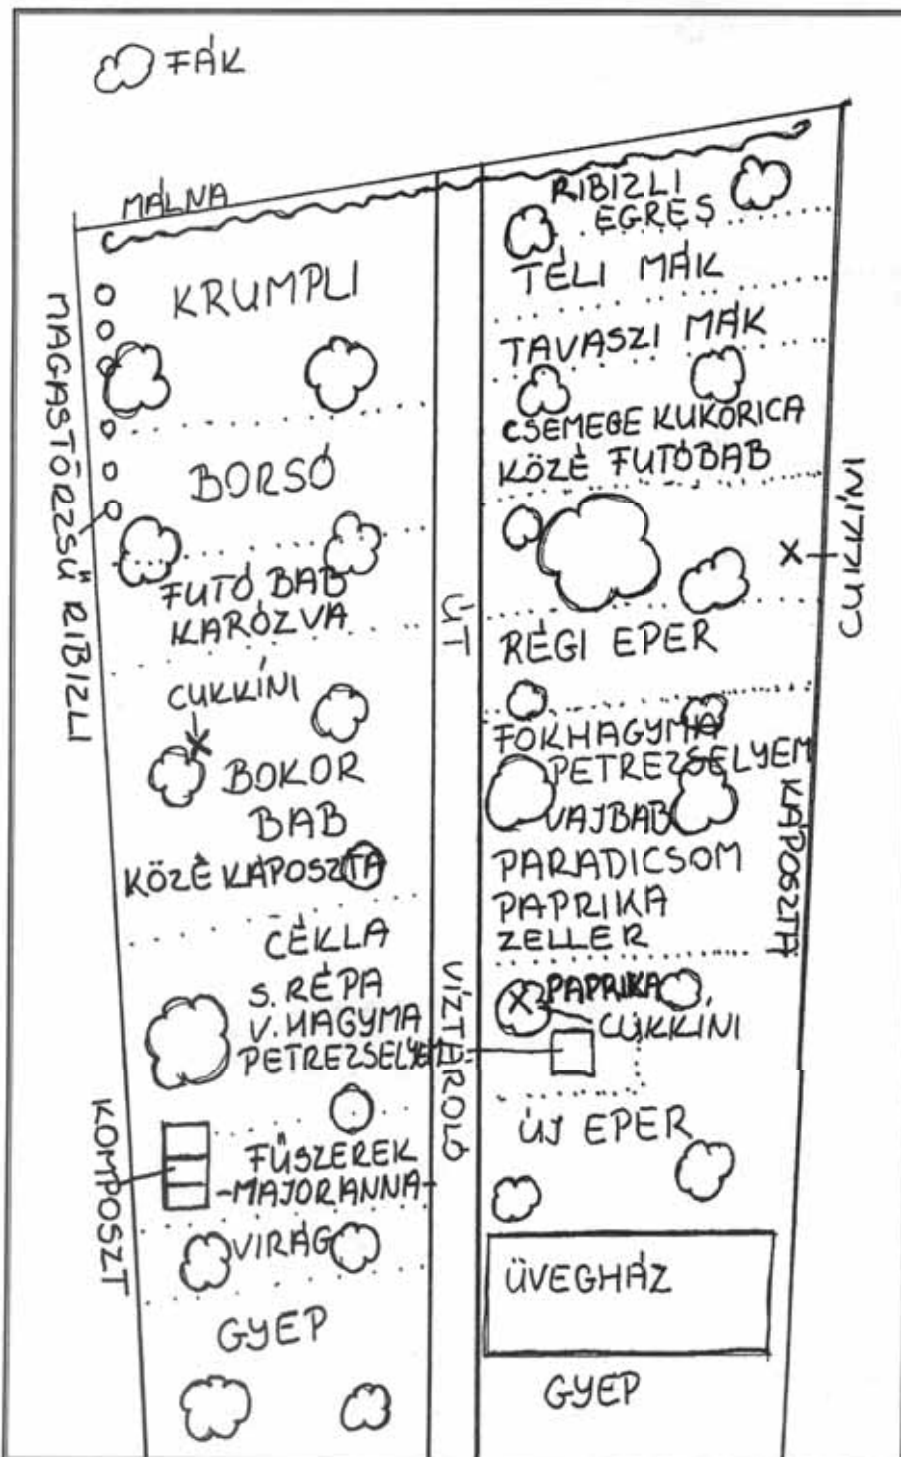 FÁK
MÁLNA
KRUMPLI
MAGASTÖRZSŰ RIBIZLI
BORSÓ
FUTÓ BAB
KARÓZVA
CUKKÍNI
BOKOR
BAB
KÖZÉ KÁPOSZTA
CÉKLA
S. RÉPA
V. HAGYMA
PETREZSELYEM
KOMPOSZT
FŰSZEREK
-MAJORANNA-
VIRÁG
GYEP
ÚT
VÍZTÁROLÓ
RIBIZLI
EGRES
TÉLI MÁK
TAVASZI MÁK
CSEMEGE KUKORICA
KÖZÉ FUTÓBAB
CUKKÍNI
RÉGI EPER
FOKHAGYMA
PETREZSELYEM
VAJBAB
KÁPOSZTA
PARADICSOM
PAPRIKA
ZELLER
PAPRIKA
CUKKÍNI
ÚJ EPER
ÜVEGHÁZ
GYEP